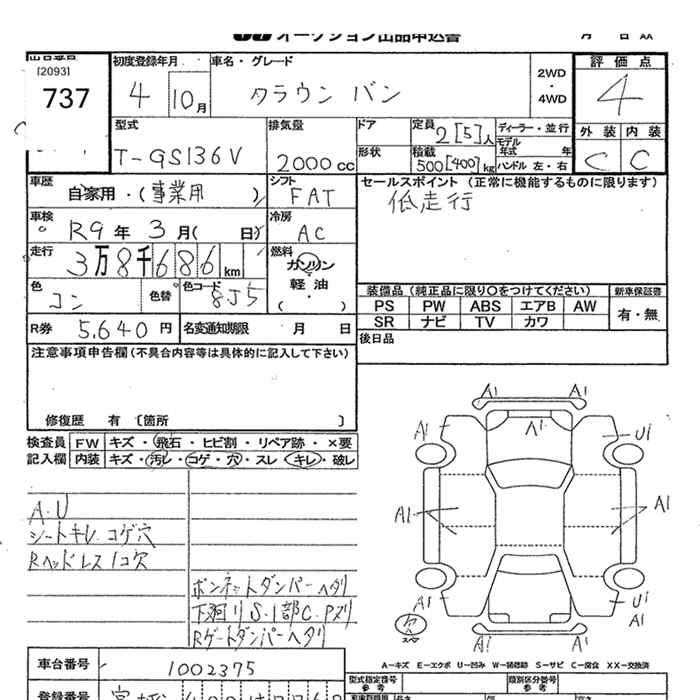 オークション出品申込書 月 日 XX
出品番号
[2093]
737
初度登録年月
4 10月
車名・グレード
クラウン バン
2WD
・
4WD
評価点
4
外装 内装
C C
型式
T-GS136V
排気量
2000cc
ドア
形状
定員 2[5]人
積載 500[400]kg
ディーラー・並行
モデル年式 年
ハンドル 左・右
車歴
自家用・(事業用 )
シフト
FAT
セールスポイント (正常に機能するものに限ります)
低走行
車検
R9年 3月( 日)
冷房
AC
走行
3万8千686km
燃料
ガソリン
軽油
( ・ )
色
コン
色替
色コード
8J5
装備品 (純正品に限り○をつけてください)
新車保証書
PS PW ABS エアB AW
SR ナビ TV カワ
有・無
R券 5,640円
名変通知期限 月 日
後日品
注意事項申告欄(不具合内容等は具体的に記入して下さい)
修復歴 有 〔箇所 〕
検査員 FW キズ・飛石・ヒビ割・リペア跡・×要
記入欄 内装 キズ・汚レ・コゲ・穴・スレ・キレ・破レ
A・U
シートキレ コゲ穴
Rヘッドレス1コ欠
ボンネットダンパーヘタリ
下廻りS・1部C・Pヌリ
Rゲートダンパーヘタリ
A1 A1
A1 A1 U1
A1 A1
A1 U1
A1
A1 A1
スペア
A-キズ E-エクボ U-凹み W-補修跡 S-サビ C-腐食 XX-交換済
車台番号
1002375
登録番号
型式指定番号
参考
類別区分番号
参考